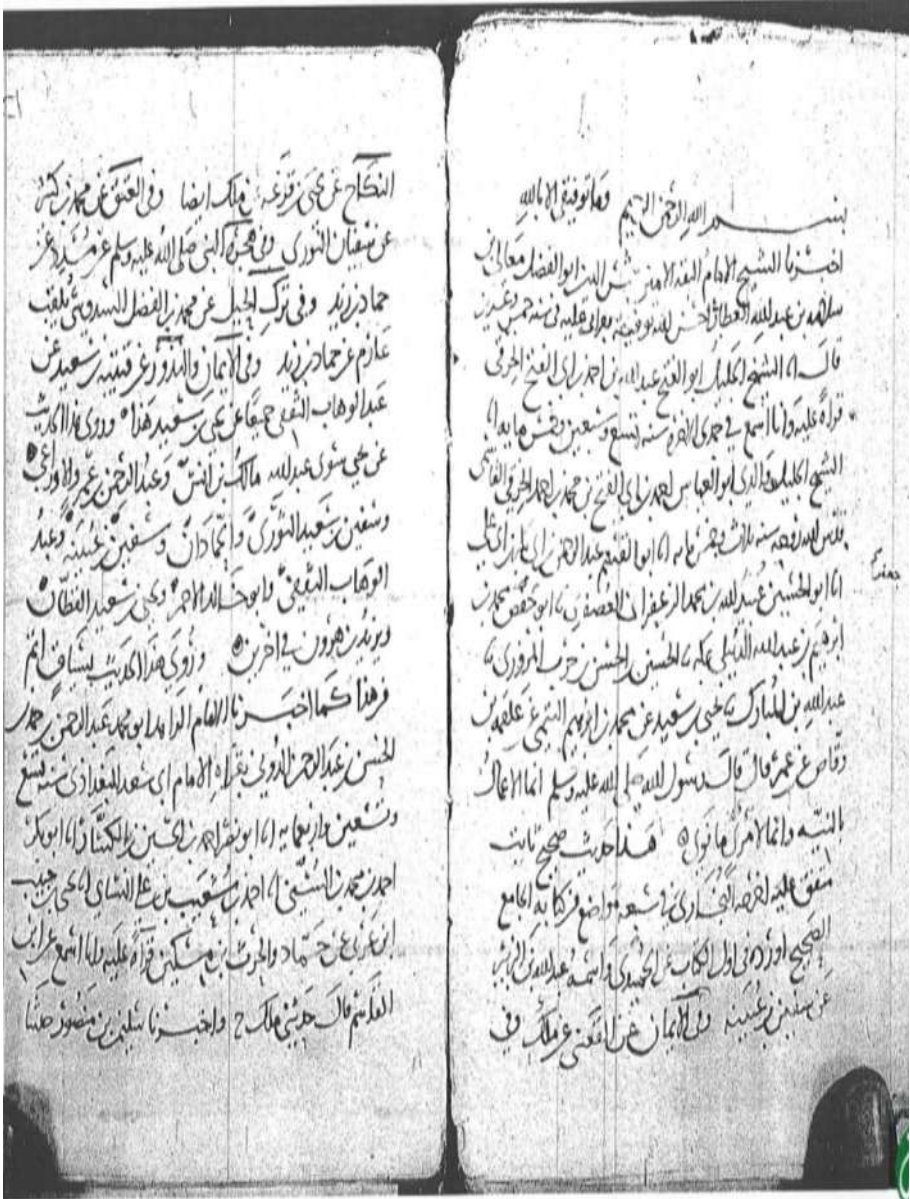 بسم الله الرحمن الرحيم وما توفيقي الا بالله
اخبرنا الشيخ الامام الثقه الامين شمس الدين ابو الفضل معالى بن
سلامه بن عبد الله العطار احسن الله توفيقه بقراتى عليه فى سنه خمس وعشرين
قال انا الشيخ الجليل ابو الفتح عبد الله بن احمد بن ابى الفتح الخرقى
قراة عليه وانا اسمع فى جمدى الاخره سنه تسع وسبعين وخمس مايه انا
الشيخ الجليل والدى ابو العباس احمد بن ابى الفتح بن محمد بن احمد الخرقى القاسمى
قدس الله روحه سنه ثلاث وخمس مايه انا ابو القسم عبد الرحمن بن ابى بكر بن ابى على
انا ابو الحسين عبيد الله بن محمد الزعفرانى ابو حفص محمد بن
ابرهيم بن عبد الله الدئيلى بمكه نا الحسين بن الحسن بن حرب المروزى نا
عبد الله بن المبارك نا يحيى بن سعيد عن محمد بن ابرهيم التيمى عن علقمه بن
وقاص عن عمر قال قال رسول الله صلى الله عليه وسلم انما الاعمال
بالنيه وانما لامرئ ما نوى ه هذا حديث صحيح ثابت
متفق عليه اخرجه البخارى فى سبعه مواضع من كتابه الجامع
الصحيح اورده فى اول الكتاب عن الحميدى واسمه عبد الله بن الزبير
عن سفين بن عيينه وفى الايمان عن القعنبى عن ملك وفى
النكاح عن يحيى بن قزعه عن ملك ايضا وفى العتق عن محمد بن كثير
عن سفيان الثورى وفى هجرة النبى صلى الله عليه وسلم عن مسدد عن
حماد بن زيد وفى ترك الحيل عن محمد بن الفضل السدوسى يلقب
عارم عن حماد بن زيد وفى الايمان والنذور عن قتيبه بن سعيد عن
عبد الوهاب الثقفى جميعا عن يحيى بن سعيد هذا ه وروى هذا الحديث
عن يحيى سوى عبد الله مالك بن انس وعبد الرحمن بن عمرو الاوزاعى
وسفين بن سعيد الثورى والحمادان وسفين بن عيينه وعبد
الوهاب الثقفى وابو خالد الاحمر ويحيى بن سعيد القطان
ويزيد بن هرون فى اخرين ه وروى هذا الحديث بسياق اتم
من هذا كما اخبرنا الامام الزاهد ابو محمد عبد الرحمن بن حمد بن
الحسن بن عبد الرحمن الدونى بقراة الامام ابى سعد البغدادى سنه تسع
وتسعين واربعمايه انا ابو نصر احمد بن الحسين بن الكسار انا ابو بكر
احمد بن محمد بن السنى انا احمد بن شعيب بن على النسائى انا يحيى بن حبيب
ابن عربى عن حماد والحرث بن مسكين قراة عليه وانا اسمع عن ابن
القاسم قال حدثنى ملك ح واخبرنا سليمن بن منصور حدثنا